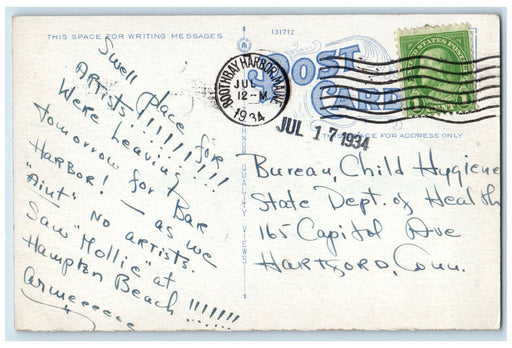 THIS SPACE FOR WRITING MESSAGES
131712
POST
CARD
THIS SPACE FOR ADDRESS ONLY
BOOTHBAY HARBOR, MAINE
JUL
12-M
1934
JUL 17 1934
Swell place for
ARTISTS!!!!!!!!!
Were leaving
tomorrow for BAR
HARBOR! — as we
"Aint" NO ARTISTS.
Saw "Mollie" at
Hampton Beach!!!!!!!
Carmeeeeee
Bureau, Child Hygiene
State Dept. of Health
165 Capitol Ave
HARTFORD, Conn.
QUALITY VIEWS